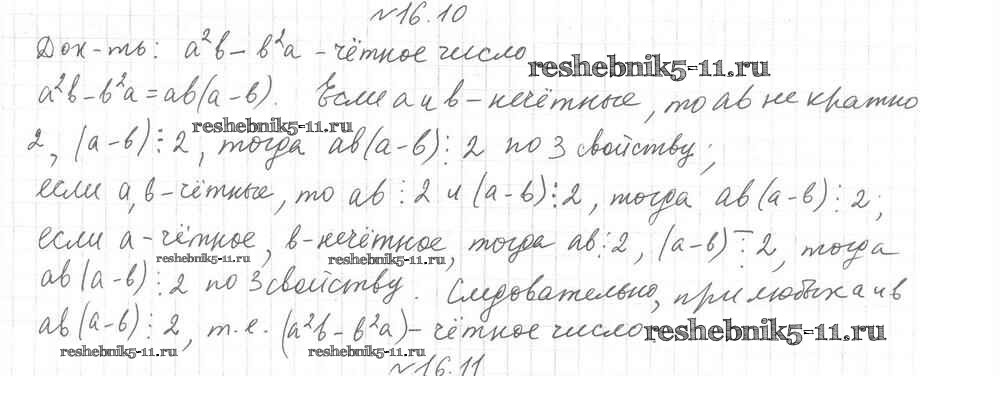 №16.10
Док-ть: a²b – b²a – чётное число
reshebnik5-11.ru
a²b – b²a = ab(a – b). Если a и b – нечётные, то ab не кратно
reshebnik5-11.ru
2, (a – b)⋮2, тогда ab(a – b)⋮2 по 3 свойству;
если a, b – чётные, то ab⋮2 и (a – b)⋮2, тогда ab(a – b)⋮2;
если a – чётное, b – нечётное, тогда ab⋮2, (a – b)⋮̅2, тогда
reshebnik5-11.ru reshebnik5-11.ru
ab(a – b)⋮2 по 3 свойству. Следовательно, при любых a и b
ab(a – b)⋮2, т.е. (a²b – b²a) – чётное число reshebnik5-11.ru
reshebnik5-11.ru reshebnik5-11.ru
№16.11